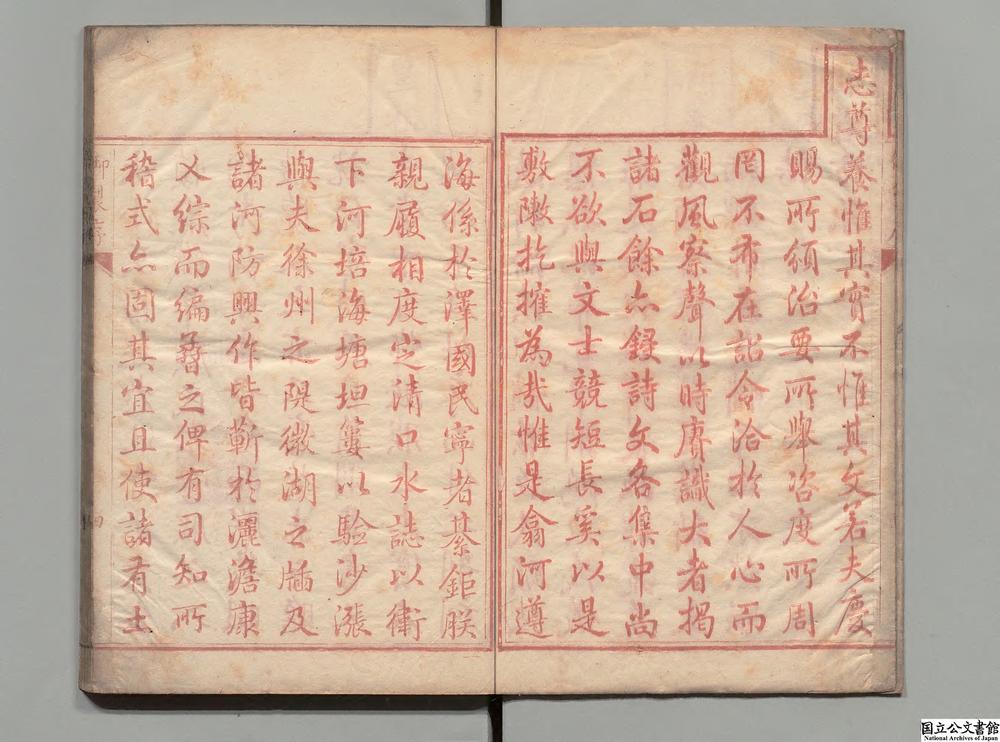 志尊養惟其實不惟其文若夫慶
賜所頒治要所舉咨度所周
罔不布在詔令洽於人心而
觀風察聲以時賡識大者揭
諸石餘亦錄詩文各集中尚
不欲與文士競短長奚以是
敷陳扢㩁為哉惟是翕河遵
海係於澤國民寧者綦鉅朕
親履相度定清口水誌以衛
下河培海塘坦簍以驗沙漲
與夫徐州之隄微湖之牐及
諸河防興作皆蘄於灑澹康
乂綜而編纂之俾有司知所
稽式亦固其宜且使諸有土
四
国立公文書館
National Archives of Japan